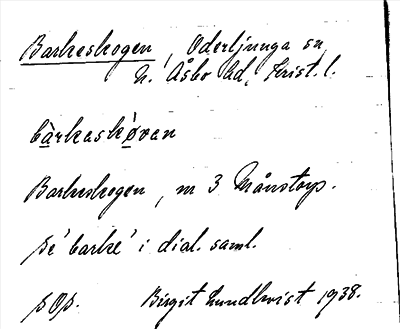 Barkeskogen, Oderljunga sn
N. Åsbo hd, Krist. l.
bàrkaskòvan
Barkeskogen, nr 3 Månstorp.
Se 'barke' i dial. saml.
Birgit Lundkvist 1938.